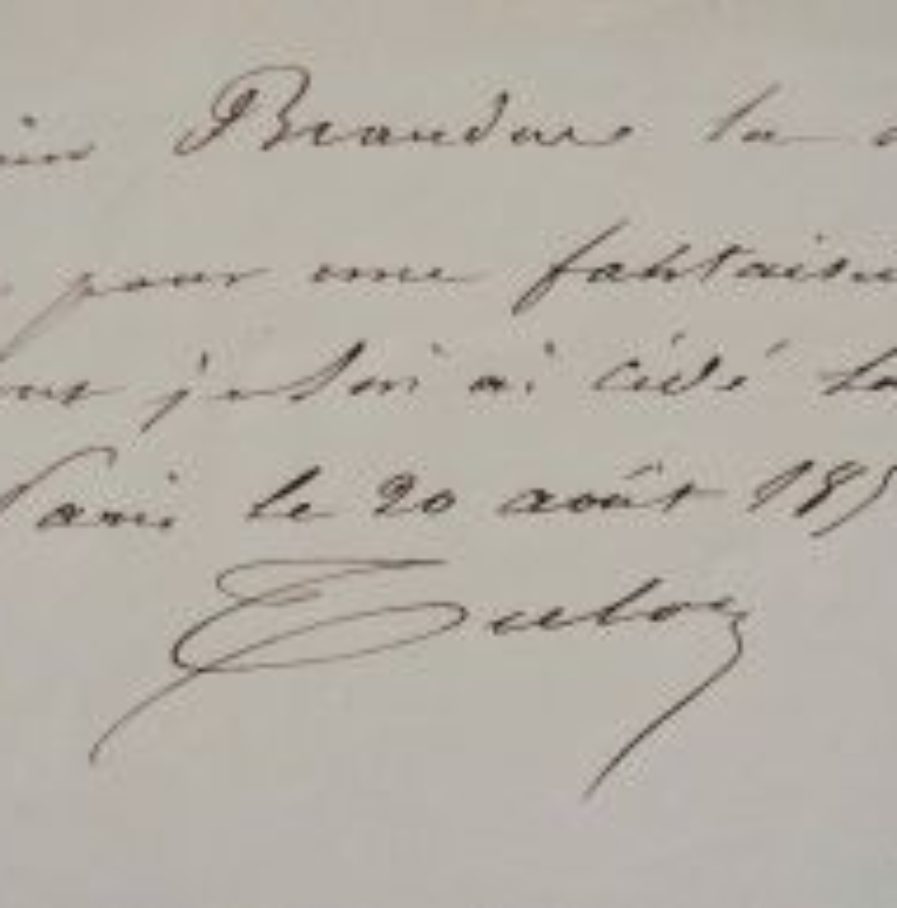 Brandus la
pour une fantaisie
je lui ai cédé la
Paris le 20 août 185
Tulou